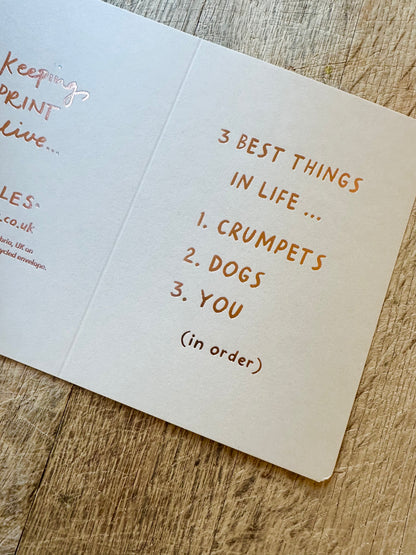 Keeping
PRINT
alive...
LES
.co.uk
bria, UK on
ycled envelope.
3 BEST THINGS
IN LIFE ...
1. CRUMPETS
2. DOGS
3. YOU
(in order)